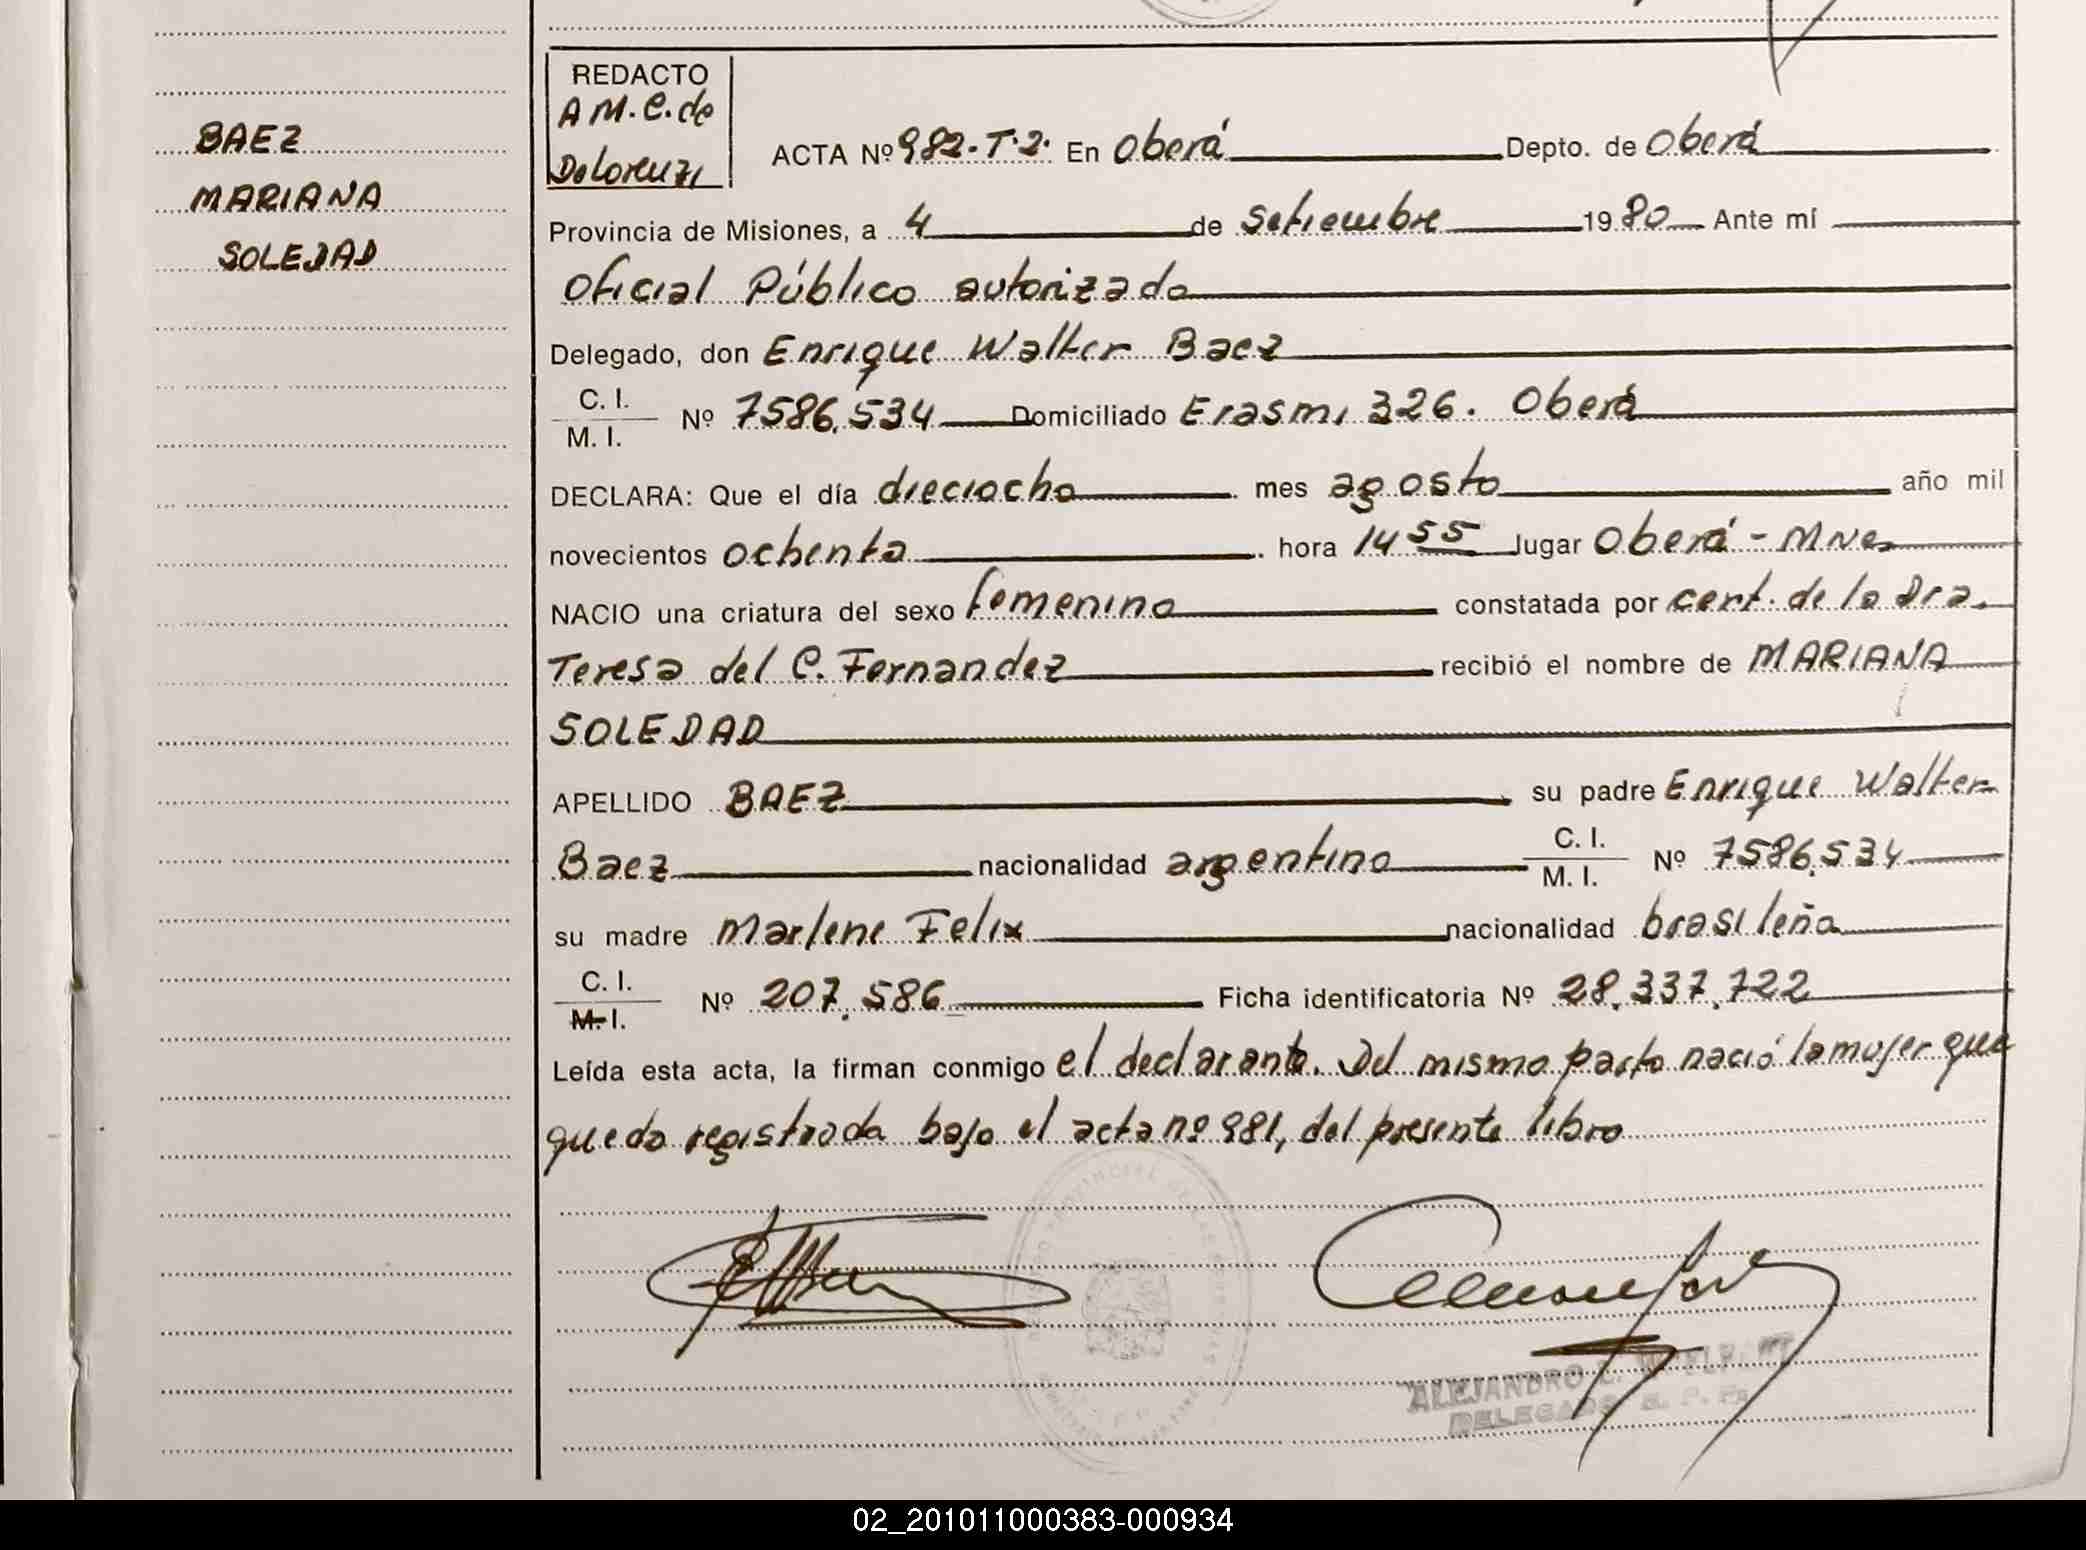 BAEZ
MARIANA
SOLEDAD
REDACTO
A M. C. de
DeLorenzi
ACTA Nº 982-T-2. En Oberá Depto. de Oberá
Provincia de Misiones, a 4 de Setiembre 1980 Ante mí
Oficial Público autorizado
Delegado, don Enrique Walter Baez
C. I.
M. I. Nº 7586.534 Domiciliado Erasmi 326. Oberá
DECLARA: Que el día dieciocho mes agosto año mil
novecientos ochenta hora 14 55 lugar Oberá - Mnes
NACIO una criatura del sexo femenino constatada por cert. de la Dra.
Teresa del C. Fernandez recibió el nombre de MARIANA
SOLEDAD
APELLIDO BAEZ su padre Enrique Walter
Baez nacionalidad argentino C. I. M. I. Nº 7586.534
su madre Marlene Felix nacionalidad brasileña
C. I.
M. I. Nº 207.586 Ficha identificatoria Nº 28.337.722
Leída esta acta, la firman conmigo el declarante. Del mismo parto nació la mujer que
queda registrada bajo el acta nº 981, del presente libro
ALEJANDRO
DELEGADO R. P. P.
02_201011000383-000934